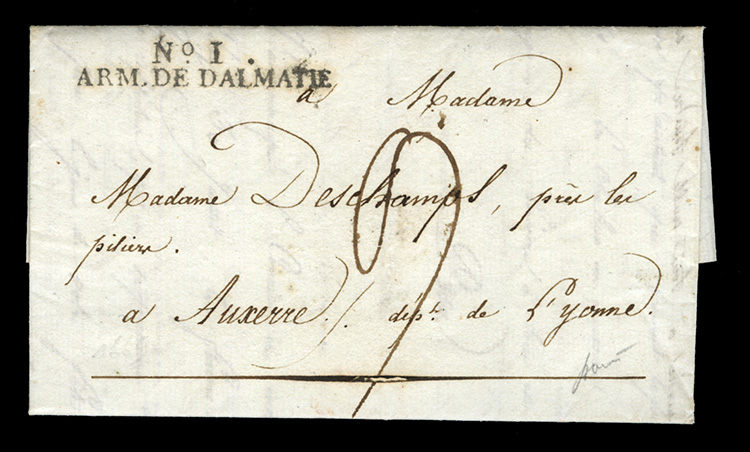 No. I.
ARM. DE DALMATIE
a Madame
9
Madame Deschamps, près les
piliers.
a Auxerre ./. dept. de L'yonne.